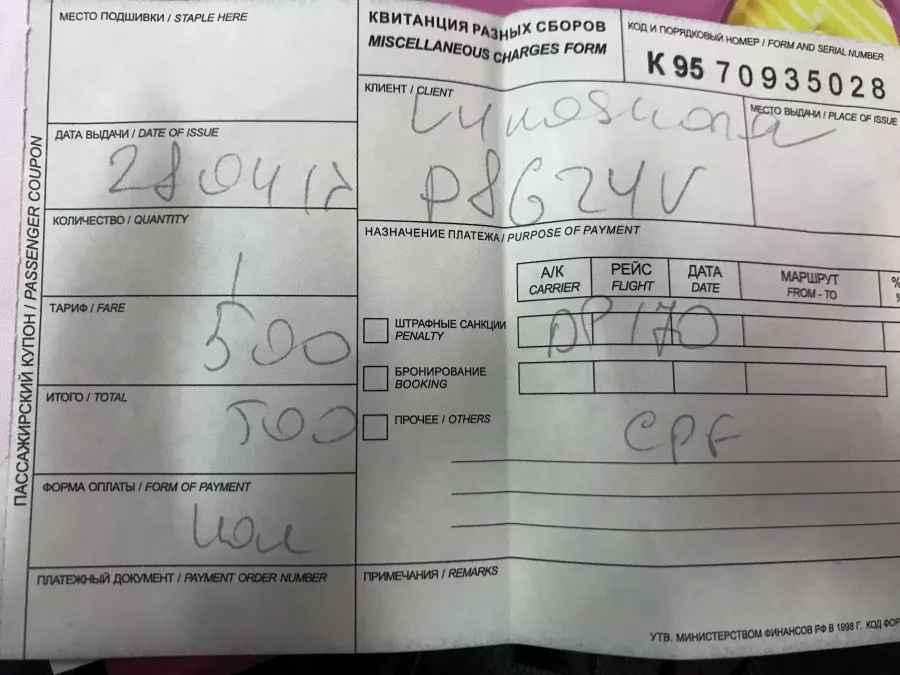 МЕСТО ПОДШИВКИ / STAPLE HERE
КВИТАНЦИЯ РАЗНЫХ СБОРОВ
MISCELLANEOUS CHARGES FORM
КОД И ПОРЯДКОВЫЙ НОМЕР / FORM AND SERIAL NUMBER
К 95 70935028
КЛИЕНТ / CLIENT
МЕСТО ВЫДАЧИ / PLACE OF ISSUE
P8G24V
ДАТА ВЫДАЧИ / DATE OF ISSUE
28 04 17
КОЛИЧЕСТВО / QUANTITY
1
ТАРИФ / FARE
500
ИТОГО / TOTAL
500
ФОРМА ОПЛАТЫ / FORM OF PAYMENT
ПЛАТЕЖНЫЙ ДОКУМЕНТ / PAYMENT ORDER NUMBER
ПАССАЖИРСКИЙ КУПОН / PASSENGER COUPON
НАЗНАЧЕНИЕ ПЛАТЕЖА / PURPOSE OF PAYMENT
А/К РЕЙС ДАТА МАРШРУТ %
CARRIER FLIGHT DATE FROM - TO %
ШТРАФНЫЕ САНКЦИИ DP 170
PENALTY
БРОНИРОВАНИЕ
BOOKING
ПРОЧЕЕ / OTHERS
CPF
ПРИМЕЧАНИЯ / REMARKS
УТВ. МИНИСТЕРСТВОМ ФИНАНСОВ РФ В 1998 Г. КОД ФОР